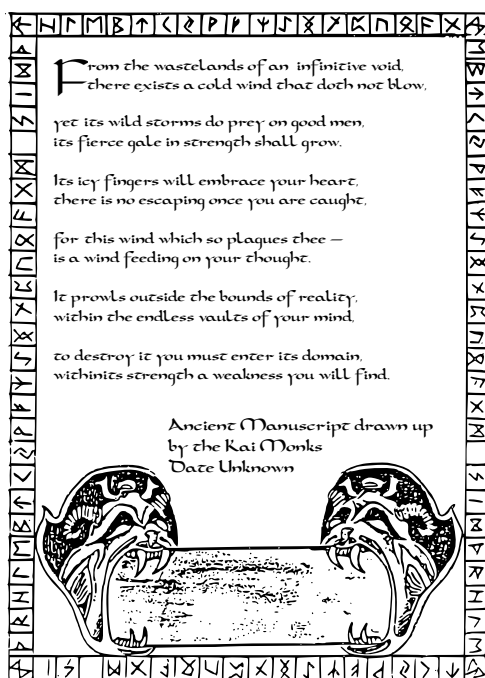 From the wastelands of an infinitive void,
there exists a cold wind that doth not blow,
yet its wild storms do prey on good men,
its fierce gale in strength shall grow.
Its icy fingers will embrace your heart,
there is no escaping once you are caught,
for this wind which so plagues thee —
is a wind feeding on your thought.
It prowls outside the bounds of reality,
within the endless vaults of your mind,
to destroy it you must enter its domain,
withinits strength a weakness you will find.
Ancient Manuscript drawn up
by the Kai Monks
Date Unknown